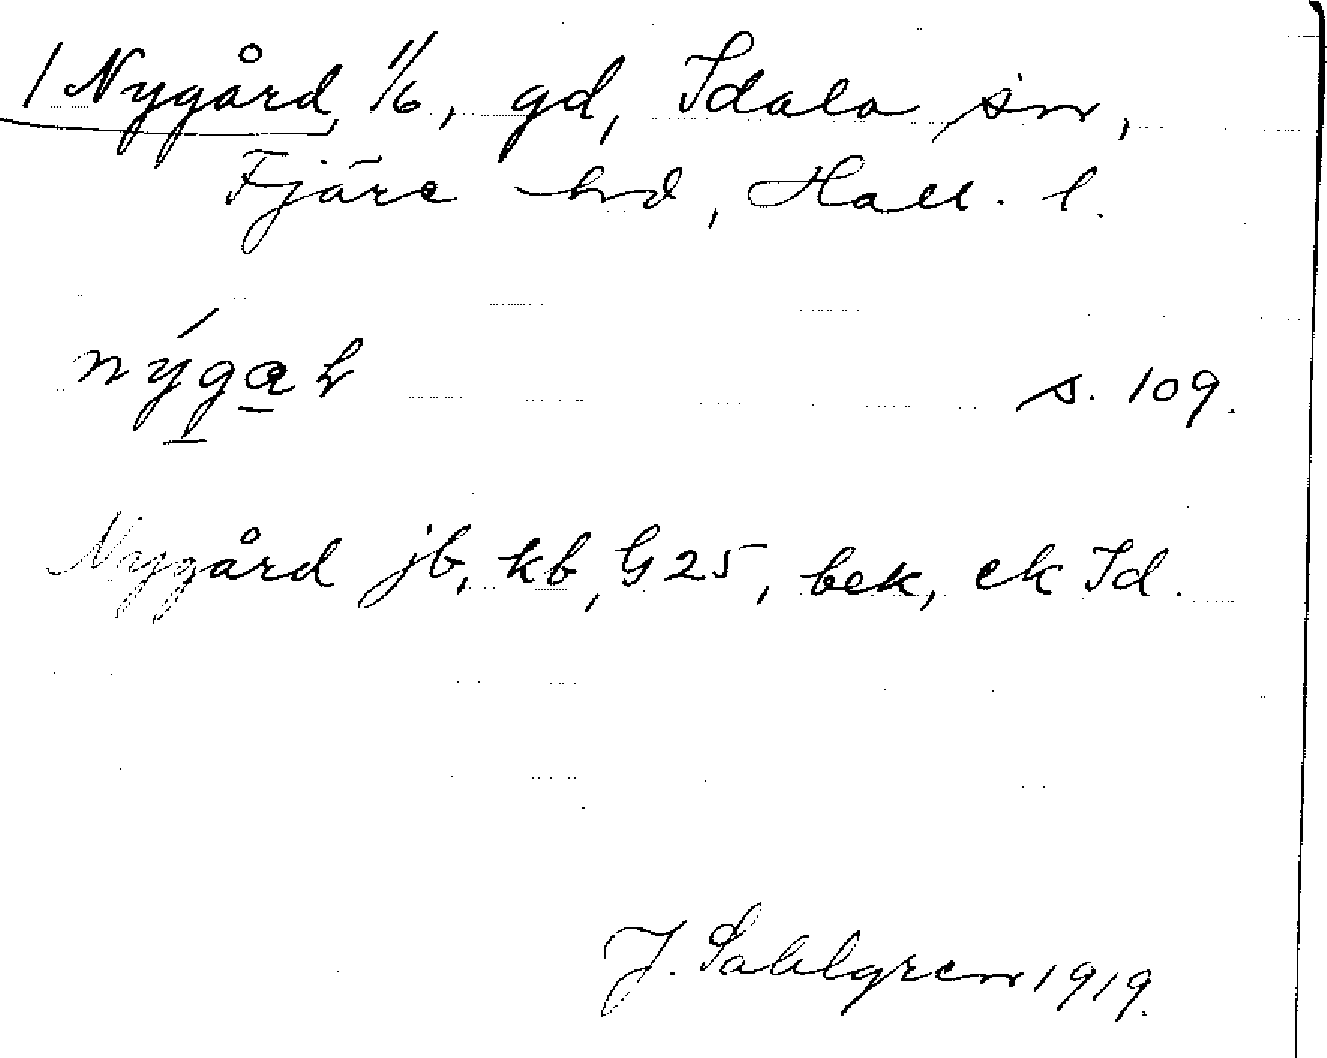 / Nygård, 1/6, gd, Idala sn,
Fjäre hd, Hall. l.
s. 109.
Nygård jb, kb, G 25, bek, ek Id.
J. Sahlgren 1919.